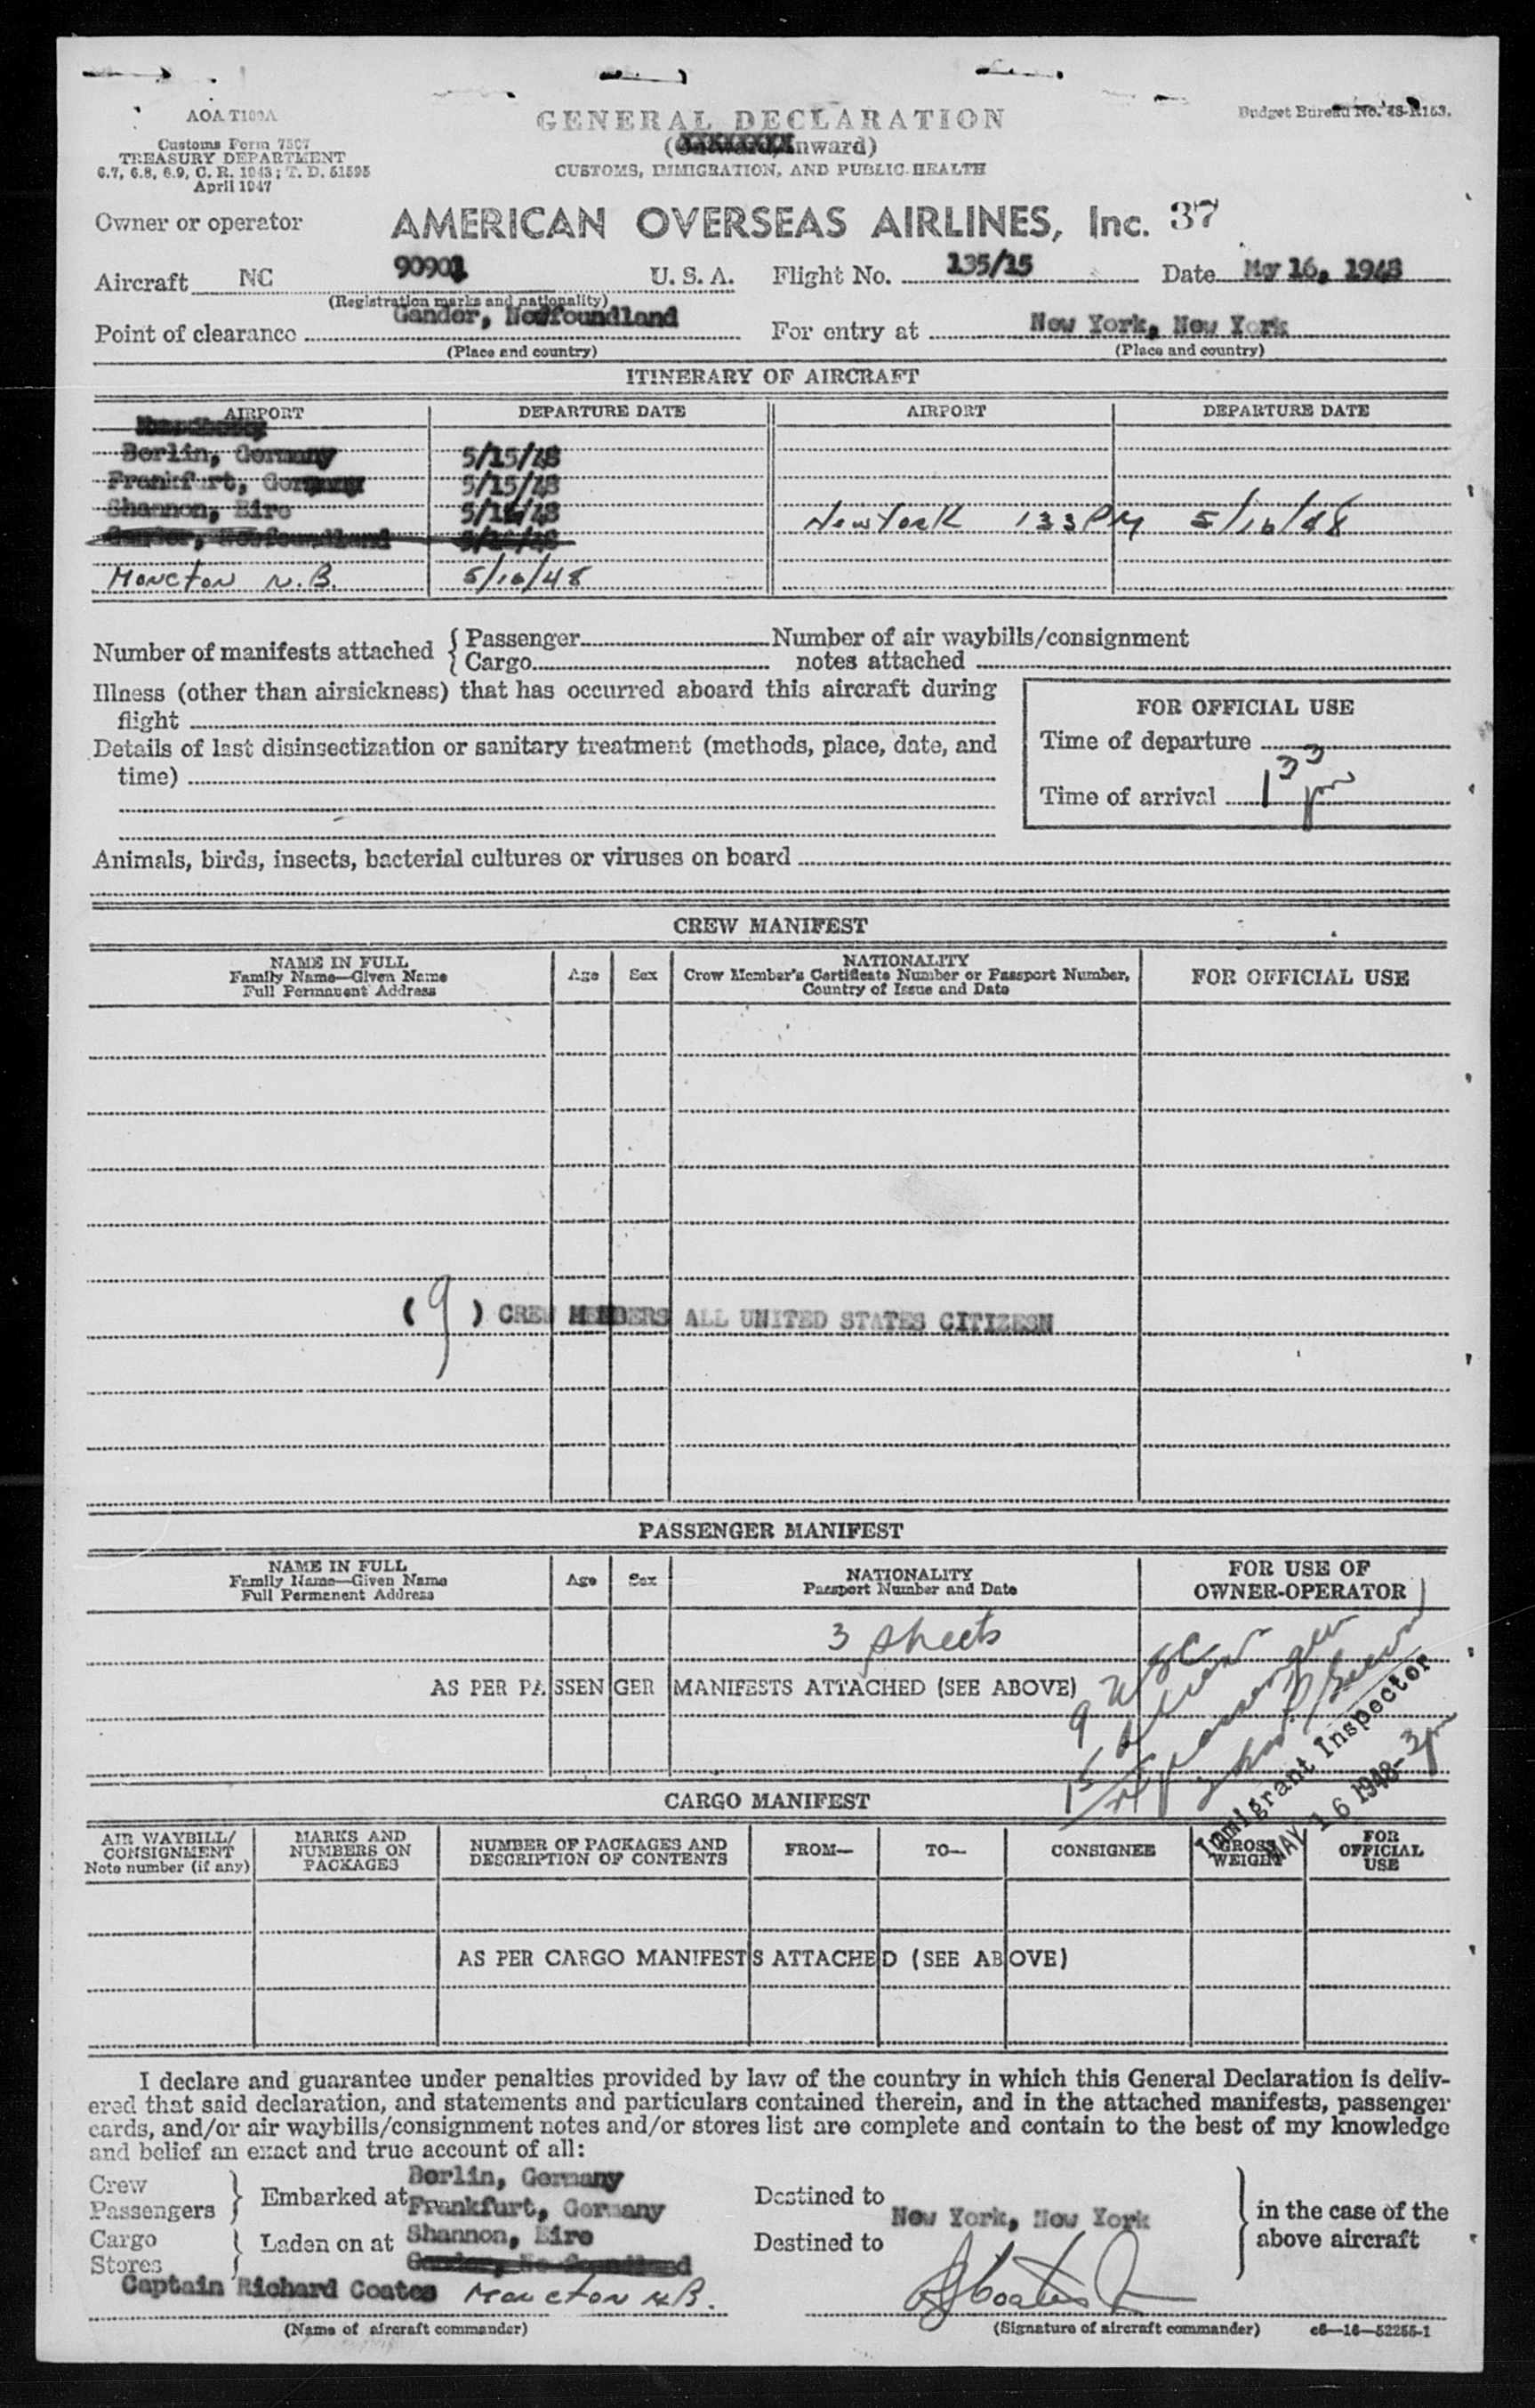 AOA T100A
Customs Form 7507
TREASURY DEPARTMENT
6.7, 6.8, 6.9, C. R. 1943; T. D. 51595
April 1947
Budget Bureau No. 48-R153.
GENERAL DECLARATION
nward)
CUSTOMS, IMMIGRATION, AND PUBLIC HEALTH
Owner or operator AMERICAN OVERSEAS AIRLINES, Inc. 37
Aircraft NC 90901 U. S. A. Flight No. 135/15 Date My 16, 1948
(Registration marks and nationality)
Point of clearance Gander, Newfoundland For entry at New York, New York
(Place and country) (Place and country)
ITINERARY OF AIRCRAFT
AIRPORT DEPARTURE DATE AIRPORT DEPARTURE DATE
Berlin, Germany 5/15/48
Frankfurt, Germany 5/15/48
Shannon, Eire 5/16/48 New York 133 PM 5/16/48
Gander, Newfoundland 5/16/48
Moncton N.B. 5/16/48
Number of manifests attached { Passenger Number of air waybills/consignment
Cargo notes attached
Illness (other than airsickness) that has occurred aboard this aircraft during
flight
Details of last disinsectization or sanitary treatment (methods, place, date, and
time)
FOR OFFICIAL USE
Time of departure
Time of arrival 1 33 pm
Animals, birds, insects, bacterial cultures or viruses on board
CREW MANIFEST
NAME IN FULL
Family Name—Given Name
Full Permanent Address
Age Sex
NATIONALITY
Crew Member's Certificate Number or Passport Number,
Country of Issue and Date
FOR OFFICIAL USE
( 9 ) CREW MEMBERS ALL UNITED STATES CITIZESN
PASSENGER MANIFEST
NAME IN FULL
Family Name—Given Name
Full Permanent Address
Age Sex
NATIONALITY
Passport Number and Date
FOR USE OF
OWNER-OPERATOR
3 sheets
AS PER PASSENGER MANIFESTS ATTACHED (SEE ABOVE)
9 USC
15 Aliens
passengers
Immigrant Inspector
MAY 16 1948 - 3 pm
CARGO MANIFEST
AIR WAYBILL/
CONSIGNMENT
Note number (if any)
MARKS AND
NUMBERS ON
PACKAGES
NUMBER OF PACKAGES AND
DESCRIPTION OF CONTENTS
FROM— TO— CONSIGNEE
GROSS
WEIGHT
FOR
OFFICIAL
USE
AS PER CARGO MANIFESTS ATTACHED (SEE ABOVE)
I declare and guarantee under penalties provided by law of the country in which this General Declaration is deliv-
ered that said declaration, and statements and particulars contained therein, and in the attached manifests, passenger
cards, and/or air waybills/consignment notes and/or stores list are complete and contain to the best of my knowledge
and belief an exact and true account of all:
Crew
Passengers } Embarked at
Cargo
Stores } Laden on at
Berlin, Germany
Frankfurt, Germany
Shannon, Eire
Gander, Newfoundland
Destined to
Destined to
New York, New York
in the case of the
above aircraft
Captain Richard Coates Moncton N.B.
(Name of aircraft commander) (Signature of aircraft commander) c6—16—52255-1